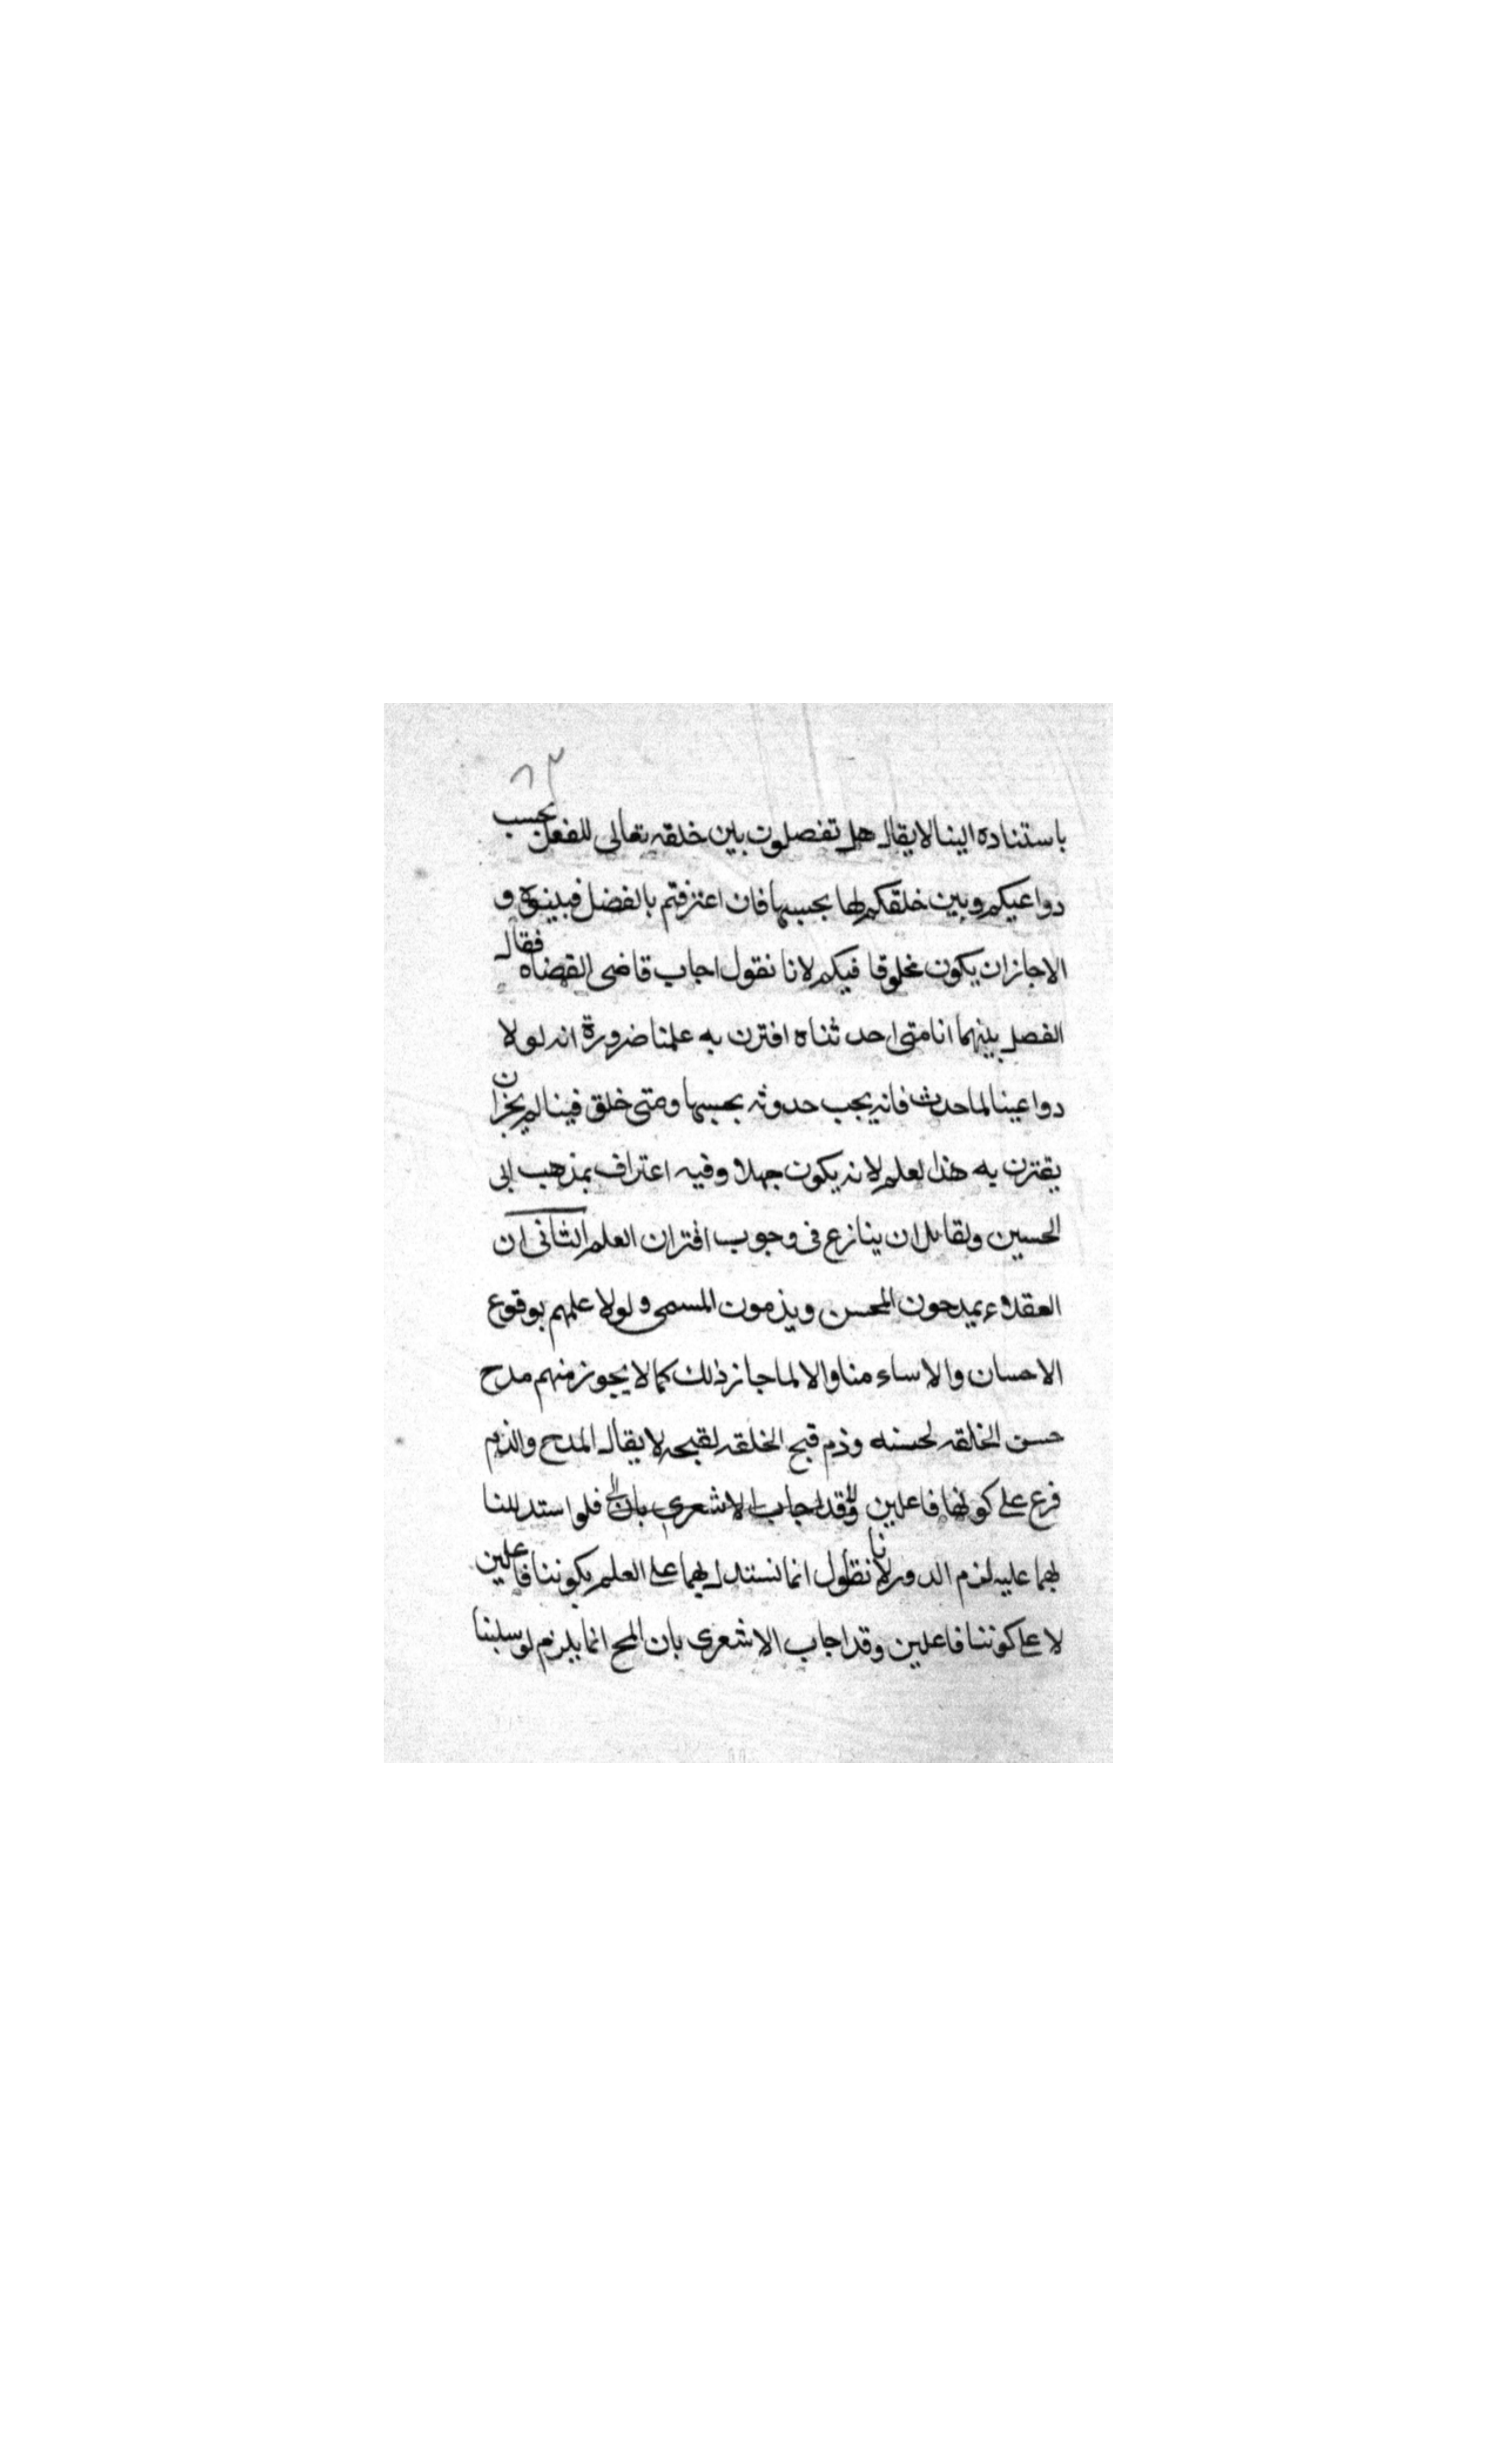 ٨٣
باستناده الينا لا يقال هل تفصلون بين خلقه تعالى للفعل بحسب
دواعيكم وبين خلقكم لها بحسبها فان اعترفتم بالفضل فبينوه و
الا جاز ان يكون مخلوقا فيكم لانا نقول اجاب قاضى القضاه فقال
الفصل بينهما انا متى احدثناه اقترن به علمنا ضرورة انه لولا
دواعينا لما حدث فانه يجب حدوثه بحسبها ومتى خلق فينا لم يجز ان
يقترن به هذا لعلم لانه يكون جهلا وفيه اعتراف بمذهب ابى
الحسين ولقائل ان ينازع فى وجوب اقتران العلم الثانى ان
العقلاء يمدحون المحسن ويذمون المسمى ولولا علمهم بوقوع
الاحسان والاساء منا والا لما جاز ذلك كما لا يجوز منهم مدح
حسن الخلقه لحسنه وذم قبح الخلقه لقبحه لا يقال المدح والذم
فرع على كونها فاعلين وقد اجاب الاشعرى بان فلو استدللنا
بهما عليه لزم الدور لانا نقول انما نستدل بهما على العلم بكوننا فاعلين
لا على كوننا فاعلين وقد اجاب الاشعرى بان المح انما يلزم لو سلبنا